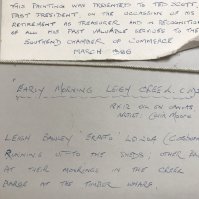 THIS PAINTING WAS PRESENTED TO TED SCOTT,
PAST PRESIDENT, ON THE OCCASSION OF HIS
RETIREMENT AS TREASURER AND IN RECOGNITION
OF ALL HIS PAST VALUABLE SERVICES TO THE
SOUTHEND CHAMBER OF COMMERCE
MARCH 1986
"EARLY MORNING LEIGH CREEK.
OIL ON CANVAS
ARTIST:
LEIGH BAWLEY
RUNNING UP TO THE SHEDS; OTHER
AT THEIR MOORINGS IN THE CREEK
BARGE AT THE TIMBER WHARF.